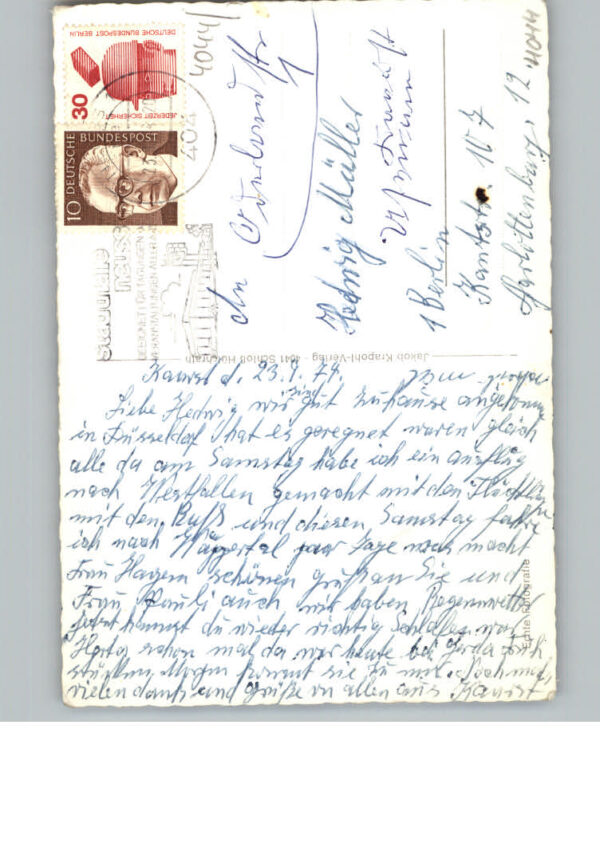 DEUTSCHE BUNDESPOST BERLIN
30
JEDERZEIT SICHERHEIT
10 DEUTSCHE BUNDESPOST
404
4044
4044
Stadthalle
neuss
An
Hedwig Müller
1 Berlin 12
Kantstr. 107
Jakob Krapohl-Verlag - 4041 Schloß Hülchrath
Echte Fotografie
Kaarst d. 23.9.74.
Liebe Hedwig wir sind gut zuhause angekomm
in Düsseldorf hat es geregnet waren gleich
alle da am Samstag habe ich ein ausflug
nach Westfallen gemacht mit den
mit den Bus und diesen Samstag fahre
ich nach Wuppertal paar Tage was macht
Frau Hagem schönen grüß an Sie und
Frau Pauli auch wir haben Regenwetter
jetzt kannst du wieder richtig schlafen war
Herta schon mal da war heute bei Gerda
Morgen kommt sie zu mir. Noch mal
vielen dank und Grüße von allen aus Kaarst